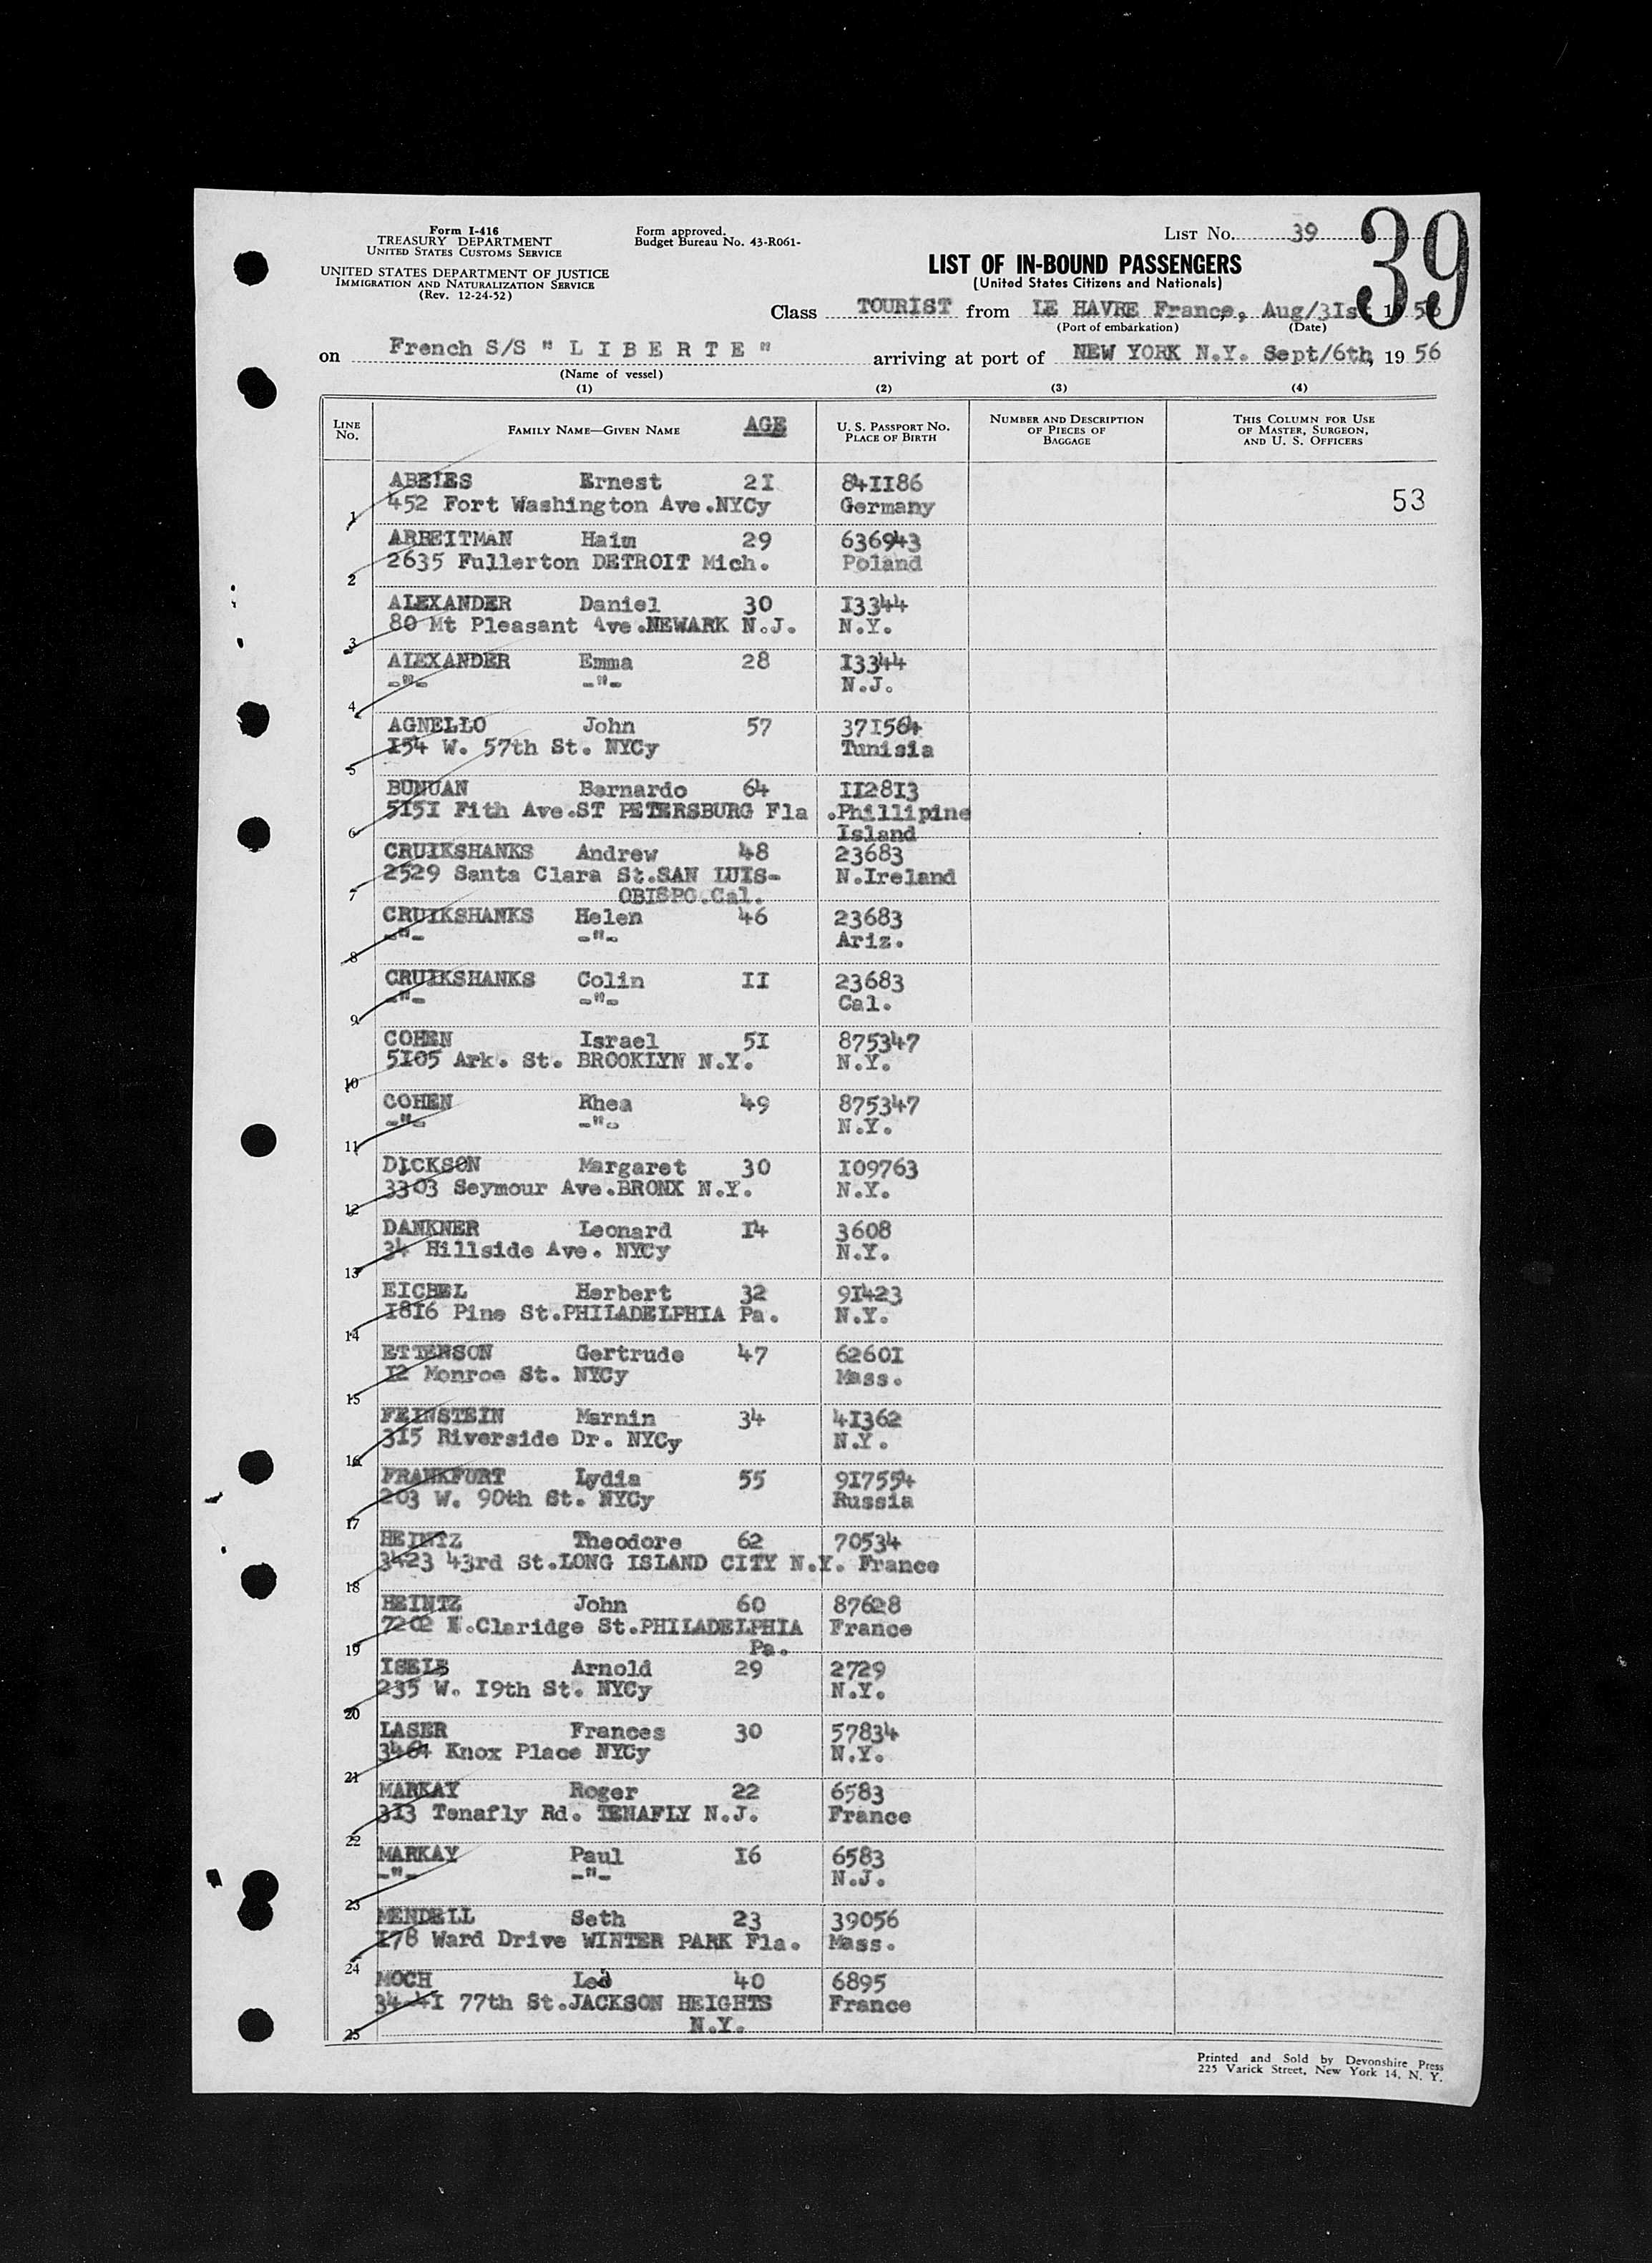 Form I-416
TREASURY DEPARTMENT
UNITED STATES CUSTOMS SERVICE
UNITED STATES DEPARTMENT OF JUSTICE
IMMIGRATION AND NATURALIZATION SERVICE
(Rev. 12-24-52)
Form approved.
Budget Bureau No. 43-R061-
LIST No. 39
39
LIST OF IN-BOUND PASSENGERS
(United States Citizens and Nationals)
Class TOURIST from LE HAVRE France, Aug/3Ist 1956
(Port of embarkation) (Date)
on French S/S " L I B E R T E " arriving at port of NEW YORK N.Y. Sept/6th, 19 56
(Name of vessel)
(1) (2) (3) (4)
LINE No. FAMILY NAME—GIVEN NAME AGE U. S. PASSPORT NO. PLACE OF BIRTH NUMBER AND DESCRIPTION OF PIECES OF BAGGAGE THIS COLUMN FOR USE OF MASTER, SURGEON, AND U. S. OFFICERS
ABELES Ernest 2I 84II86
1 452 Fort Washington Ave.NYCy Germany 53
ARBEITMAN Haim 29 636943
2 2635 Fullerton DETROIT Mich. Poland
ALEXANDER Daniel 30 I3344
3 80 Mt Pleasant Ave.NEWARK N.J. N.Y.
ALEXANDER Emma 28 I3344
-"- -"- N.J.
4
AGNELLO John 57 37I564
5 I54 W. 57th St. NYCy Tunisia
BUNUAN Bernardo 64 II28I3
6 5I5I Fith Ave.ST PETERSBURG Fla .Phillipine
Island
CRUIKSHANKS Andrew 48 23683
7 2529 Santa Clara St.SAN LUIS- N.Ireland
OBISPO.Cal.
CRUIKSHANKS Helen 46 23683
8 -"- -"- Ariz.
CRUIKSHANKS Colin II 23683
9 -"- -"- Cal.
COHEN Israel 5I 875347
10 5I05 Ark. St. BROOKLYN N.Y. N.Y.
COHEN Rhea 49 875347
11 -"- -"- N.Y.
DICKSON Margaret 30 I09763
12 3303 Seymour Ave.BRONX N.Y. N.Y.
DANKNER Leonard I4 3608
13 34 Hillside Ave. NYCy N.Y.
EICHEL Herbert 32 9I423
14 I8I6 Pine St.PHILADELPHIA Pa. N.Y.
ETTENSON Gertrude 47 6260I
15 I2 Monroe St. NYCy Mass.
FEINSTEIN Marnin 34 4I362
16 3I5 Riverside Dr. NYCy N.Y.
FRANKFURT Lydia 55 9I7554
17 203 W. 90th St. NYCy Russia
HEINTZ Theodore 62 70534
18 3423 43rd St.LONG ISLAND CITY N.Y. France
HEINTZ John 60 87628
19 7202 N.Claridge St.PHILADELPHIA France
Pa.
ISELS Arnold 29 2729
20 235 W. I9th St. NYCy N.Y.
LASER Frances 30 57834
21 3464 Knox Place NYCy N.Y.
MARKAY Roger 22 6583
22 3I3 Tenafly Rd. TENAFLY N.J. France
MARKAY Paul I6 6583
23 -"- -"- N.J.
MENDELL Seth 23 39056
24 I78 Ward Drive WINTER PARK Fla. Mass.
MOCH 40 6895
25 34-4I 77th St.JACKSON HEIGHTS France
N.Y.
Printed and Sold by Devonshire Press
225 Varick Street, New York 14, N. Y.